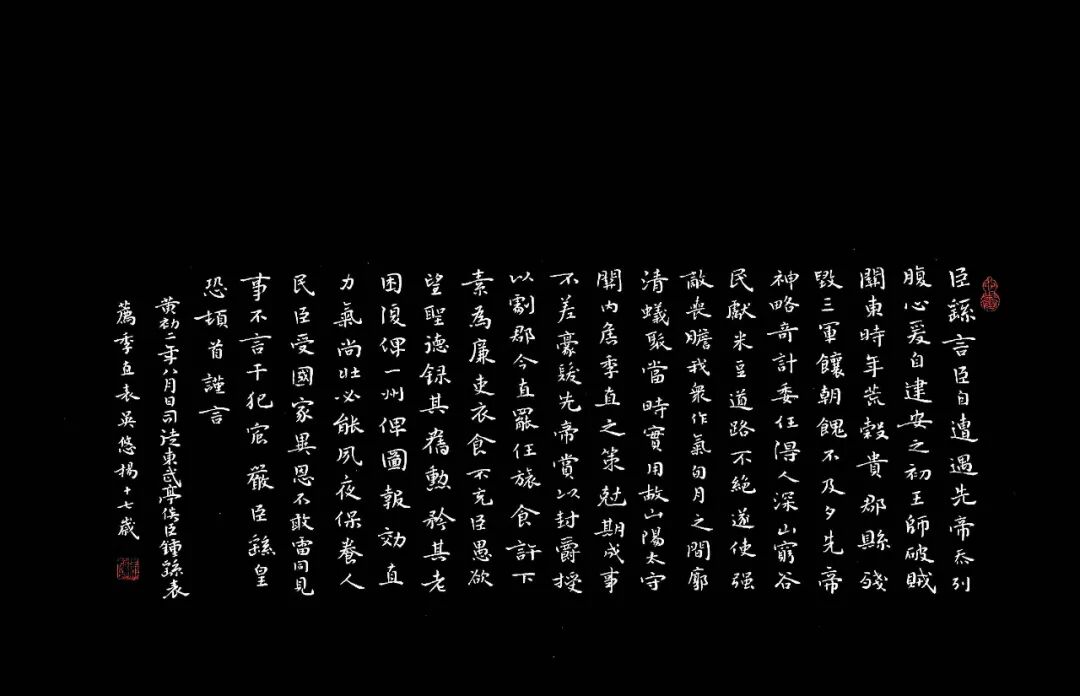 臣繇言臣自遭遇先帝忝列
腹心爰自建安之初王師破賊
關東時年荒穀貴郡縣殘
毀三軍饟朝餽不及夕先帝
神略奇計委任得人深山窮谷
民獻米豆道路不絕遂使强
敵喪膽我衆作氣旬月之間廓
清蟻聚當時實用故山陽太守
關內侯季直之策尅期成事
不差豪髮先帝賞以封爵授
以劇郡今直罷任旅食許下
素為廉吏衣食不充臣愚欲
望聖德録其舊勲矜其老
困復俾一州俾圖報効直
力氣尚壯必能夙夜保養人
民臣受國家異恩不敢雷同見
事不言干犯宸嚴臣繇皇
恐頓首謹言
黄初二年八月日司徒東武亭侯臣鍾繇表
薦季直表吳悠揚十七歲